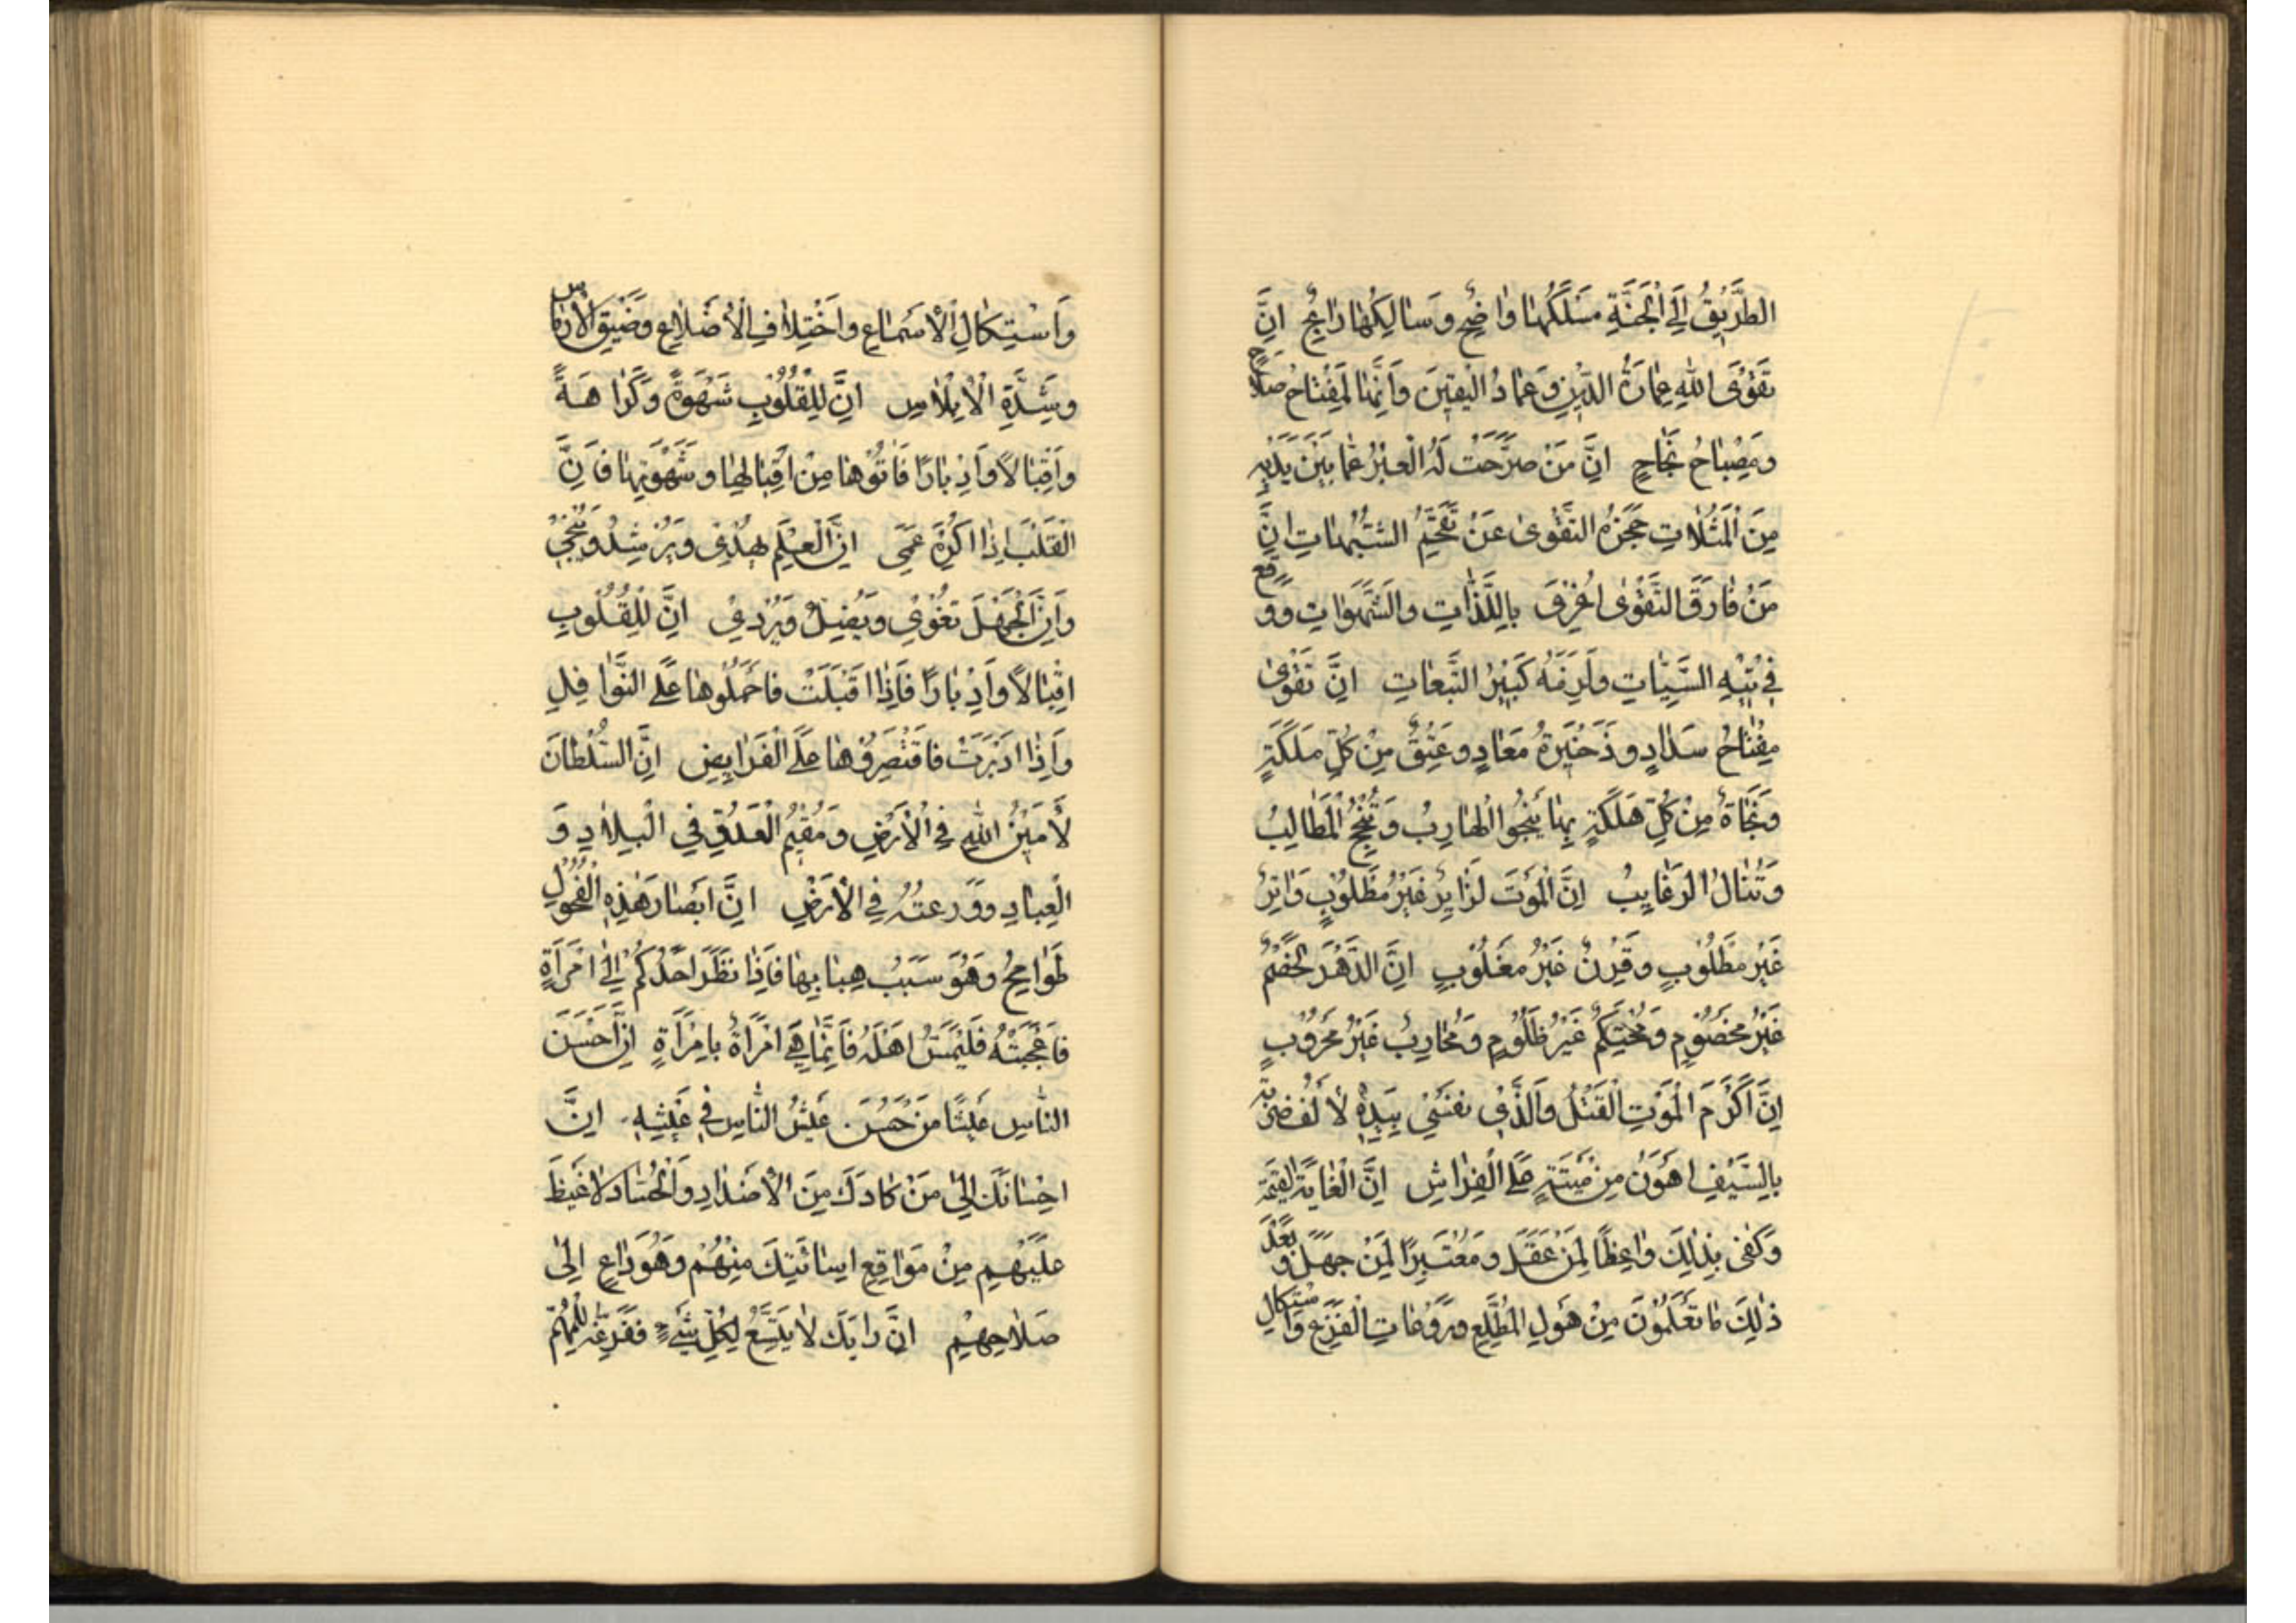 الطَّرِيقُ إِلَى الْجَنَّةِ مَسْلَكُهَا وَاضِحٌ وَسَالِكُهَا رَابِحٌ اِنَّ
تَقْوَى اللهِ عِمَارَةُ الدِّينِ وَعِمَادُ الْيَقِينِ وَاِنَّهَا لَمِفْتَاحُ صَلَاحٍ
وَمِصْبَاحُ نَجَاحٍ اِنَّ مَنْ صَرَّحَتْ لَهُ الْعِبَرُ عَمَّا بَيْنَ يَدَيْهِ
مِنَ الْمَثُلَاتِ حَجَزَهُ التَّقْوَى عَنْ تَقَحُّمِ الشُّبُهَاتِ اِنَّ
مَنْ فَارَقَ التَّقْوَى اُغْرِيَ بِاللَّذَّاتِ وَالشَّهَوَاتِ وَوَقَعَ
فِي تِيهِ السَّيِّئَاتِ وَلَزِمَهُ كَبِيرُ التَّبِعَاتِ اِنَّ تَقْوَى
مِفْتَاحُ سَدَادٍ وَذَخِيرَةُ مَعَادٍ وَعِتْقٌ مِنْ كُلِّ مَلَكَةٍ
وَنَجَاةٌ مِنْ كُلِّ هَلَكَةٍ بِهَا يَنْجُوا الْهَارِبُ وَتُنْجِحُ الْمَطَالِبُ
وَتُنَالُ الرَّغَايِبُ اِنَّ الْمَوْتَ لَزَايِرٌ غَيْرُ مَطْلُوبٍ وَاتِرٌ
غَيْرُ مَطْلُوبٍ وَقِرْنٌ غَيْرُ مَغْلُوبٍ اِنَّ الدَّهْرَ لَخَصْمٌ
غَيْرُ مَخْصُومٍ وَمُحْتَكِمٌ غَيْرُ ظَلُومٍ وَمُحَارِبٌ غَيْرُ مَحْرُوبٍ
اِنَّ اَكْرَمَ الْمَوْتِ الْقَتْلُ وَالَّذِي نَفْسِي بِيَدِهِ لَاَلْفُ ضَرْبَةٍ
بِالسَّيْفِ اَهْوَنُ مِنْ مِيتَةٍ عَلَى الْفِرَاشِ اِنَّ الْغَايَةَ الْقِيمَةُ
وَكَفَى بِذَلِكَ وَاعِظًا لِمَنْ عَقَلَ وَمُعْتَبَرًا لِمَنْ جَهِلَ وَبَعْدَ
ذَلِكَ مَا تَعْلَمُونَ مِنْ هَوْلِ الْمُطَّلَعِ وَرَوْعَاتِ الْفَزَعِ وَاسْتِكَالِ
وَاسْتِكَالِ الْاَسْمَاعِ وَاخْتِلَافِ الْاَضْلَاعِ وَضِيقِ الْاَرْمَاسِ
وَشِدَّةِ الْاِبْلَاسِ اِنَّ لِلْقُلُوبِ شَهْوَةً وَكَرَاهَةً
وَاِقْبَالًا وَاِدْبَارًا فَاْتُوهَا مِنْ اِقْبَالِهَا وَشَهْوَتِهَا فَاِنَّ
الْقَلْبَ اِذَا اُكْرِهَ عَمِيَ اِنَّ الْعِلْمَ يَهْدِي وَيُرْشِدُ وَيُنْجِي
وَاِنَّ الْجَهْلَ يُغْوِي وَيُضِلُّ وَيُرْدِي اِنَّ لِلْقُلُوبِ
اِقْبَالًا وَاِدْبَارًا فَاِذَا اَقْبَلَتْ فَاحْمِلُوهَا عَلَى النَّوَافِلِ
وَاِذَا اَدْبَرَتْ فَاقْتَصِرُوهَا عَلَى الْفَرَايِضِ اِنَّ السُّلْطَانَ
لَاَمِينُ اللهِ فِي الْاَرْضِ وَمُقِيمُ الْعَدْلِ فِي الْبِلَادِ وَ
الْعِبَادِ وَوَزَعَتُهُ فِي الْاَرْضِ اِنَّ اَبْصَارَ هَذِهِ الْفُحُولِ
طَوَامِحُ وَهُوَ سَبَبُ هِبَابِهَا فَاِذَا نَظَرَ اَحَدُكُمْ اِلَى امْرَاَةٍ
فَاَعْجَبَتْهُ فَلْيَمَسَّ اَهْلَهُ فَاِنَّمَا هِيَ امْرَاَةٌ بِامْرَاَةٍ اِنَّ اَحْسَنَ
النَّاسِ عَيْشًا مَنْ حَسُنَ عَيْشُ النَّاسِ فِي عَيْشِهِ اِنَّ
اِحْسَانَكَ اِلَى مَنْ كَادَكَ مِنَ الْاَضْدَادِ وَالْحُسَّادِ لَاَغْيَظُ
عَلَيْهِمْ مِنْ مَوَاقِعِ اِسَائَتِكَ مِنْهُمْ وَهُوَ دَاعٍ اِلَى
صَلَاحِهِمْ اِنَّ رَايَكَ لَا يَتَّسِعُ لِكُلِّ شَيْءٍ فَفَرِّغْهُ لِلْمُهِمِّ